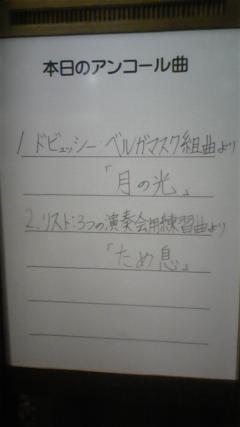 本日のアンコール曲
1.ドビュッシー:ベルガマスク組曲より
「月の光」
2.リスト:3つの演奏会用練習曲より
「ため息」